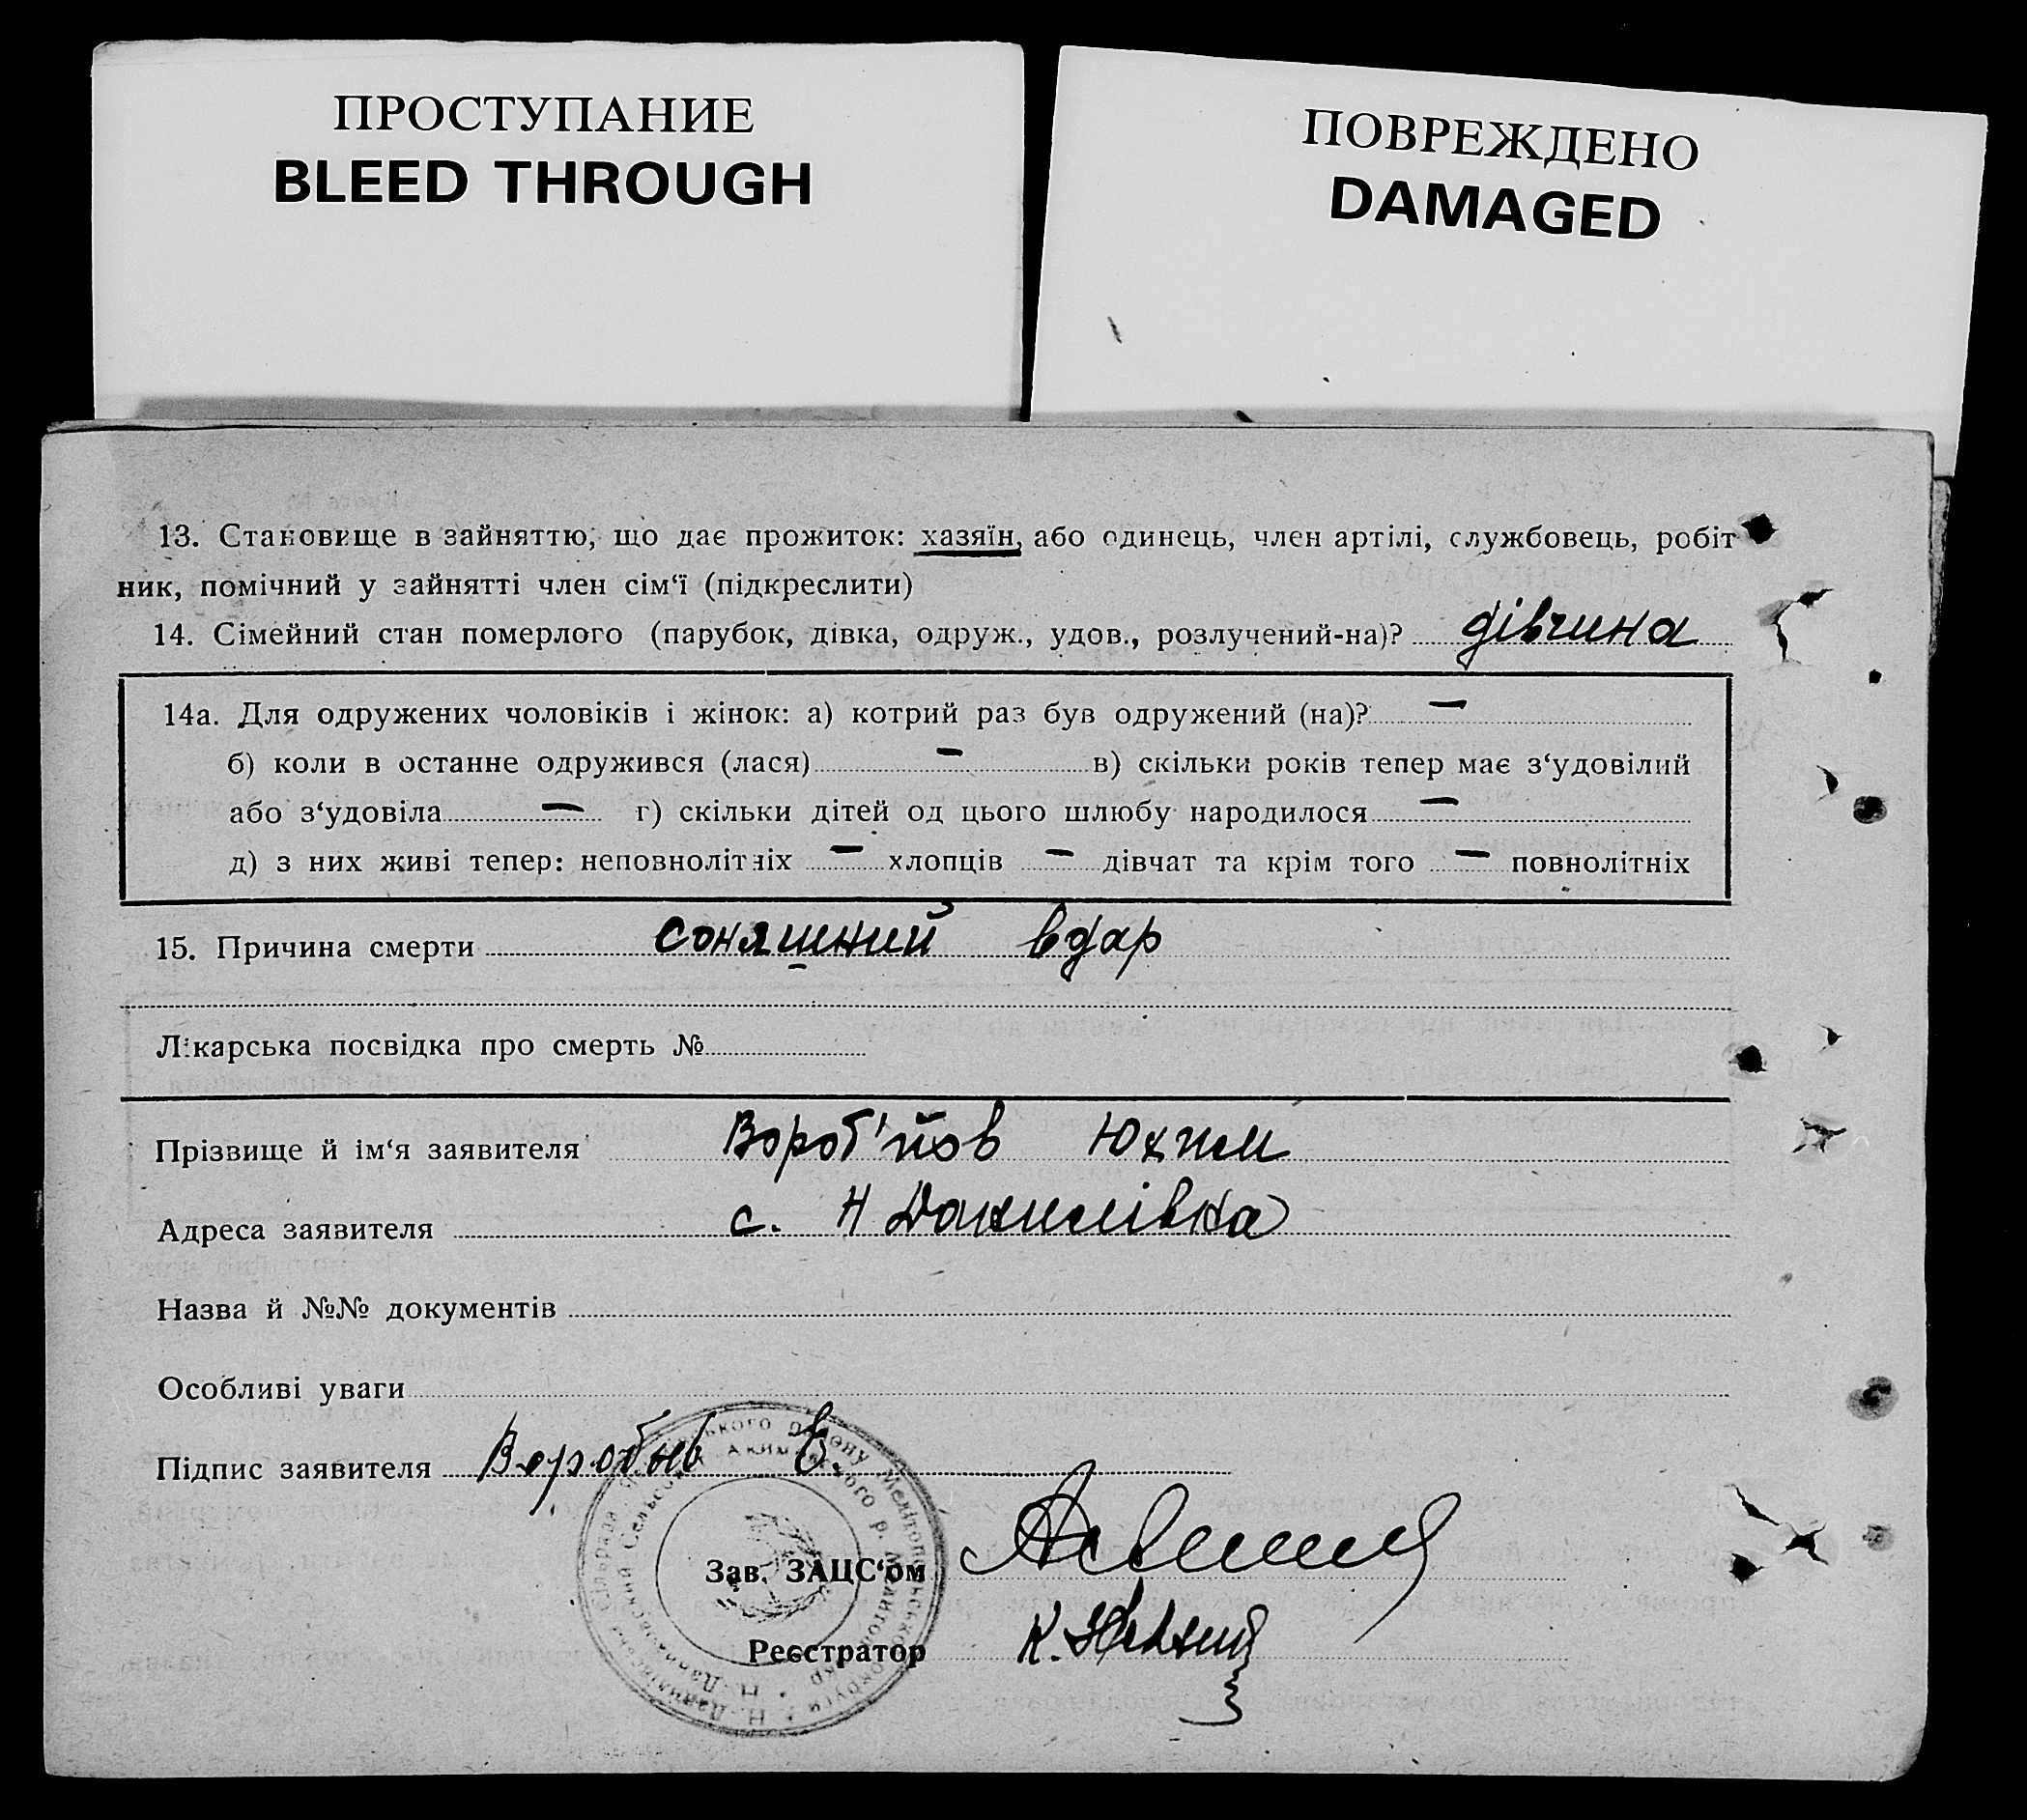 ПРОСТУПАНИЕ
BLEED THROUGH
ПОВРЕЖДЕНО
DAMAGED
13. Становище в зайняттю, що дає прожиток: хазяїн, або одинець, член артілі, службовець, робіт
ник, помічний у зайнятті член сім‘ї (підкреслити)
14. Сімейний стан померлого (парубок, дівка, одруж., удов., розлучений-на)? дівчина
14а. Для одружених чоловіків і жінок: а) котрий раз був одружений (на)? —
б) коли в останне одружився (лася) — в) скільки років тепер має з‘удовілий
або з‘удовіла — г) скільки дітей од цього шлюбу народилося —
д) з них живі тепер: неповнолітніх — хлопців — дівчат та крім того — повнолітніх
15. Причина смерти соняшний вдар
Лікарська посвідка про смерть №
Прізвище й ім‘я заявителя Вороб'йов Юхим
Адреса заявителя с. Н Данилівка
Назва й №№ документів
Особливі уваги
Підпис заявителя Воробьев Е.
Зав. ЗАЦС‘ом
Реєстратор К.